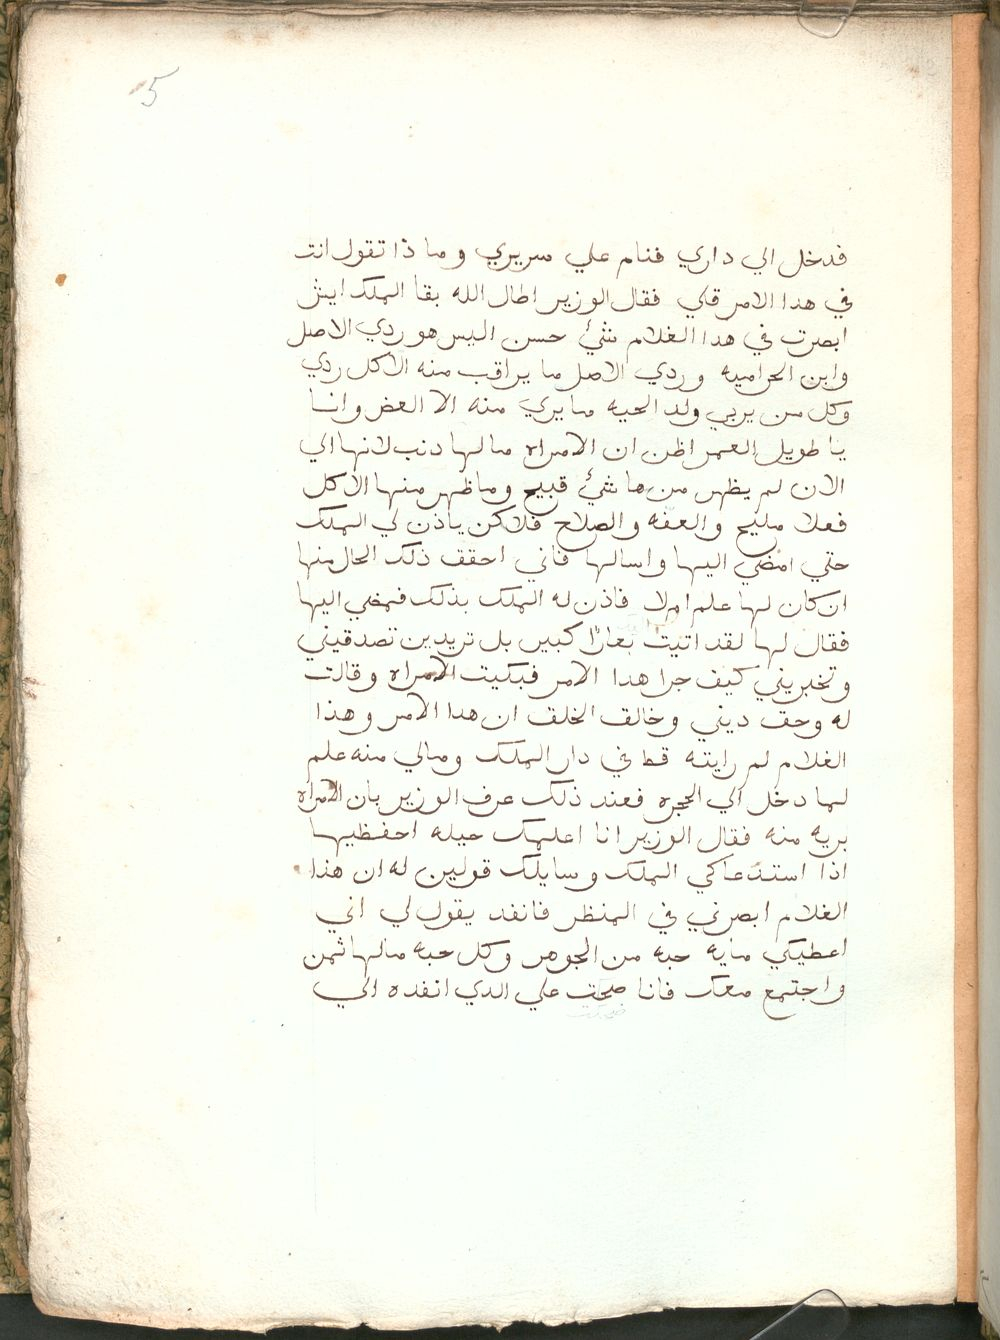 5
فدخل الي داري فنام علي سريري وما ذا تقول انت
في هدا الامر قلي فقال الوزير اطال الله بقا الملك ايش
ابصرت في هدا الغلام شيء حسن اليس هو ردي الاصل
وابن الحراميه وردي الاصل ما يراقب منه الا كل ردي
وكل من يربي ولد الحيه ما يري منه الا العض وانا
يا طويل العمر اظن ان الامراه ما لها دنب لانها الي
الان لم يظهر من ها شيء قبيح وما ظهر منها الا كل
فعلا مليح والعفه والصلاح فلاكن ياذن لي الملك
حتي امضي اليها واسالها فاني احقق ذلك الحال منها
ان كان لها علم ام لا فاذن له الملك بذلك فمضي اليها
فقال لها لقد اتيت بعارا كبير بل تريدين تصدقيني
وتخبريني كيف جرا هدا الامر فبكيت الامراه وقالت
له وحق ديني وخالق الخلق ان هدا الامر وهذا
الغلام لم رايته قط في دار الملك ومالي منه علم
لما دخل الي الحجره فعند ذلك عرف الوزير بان الامراه
بريه منه فقال الوزير انا اعلمك حيله احفظيها
اذا استدعاكي الملك وسايلك قولين له ان هذا
الغلام ابصرني في المنظر فانفد يقول لي اني
اعطيكي مايه حبه من الجوهر وكل حبه مالها ثمن
واجتمع معك فانا ضحكت علي الدي انفده الي
ضحكت